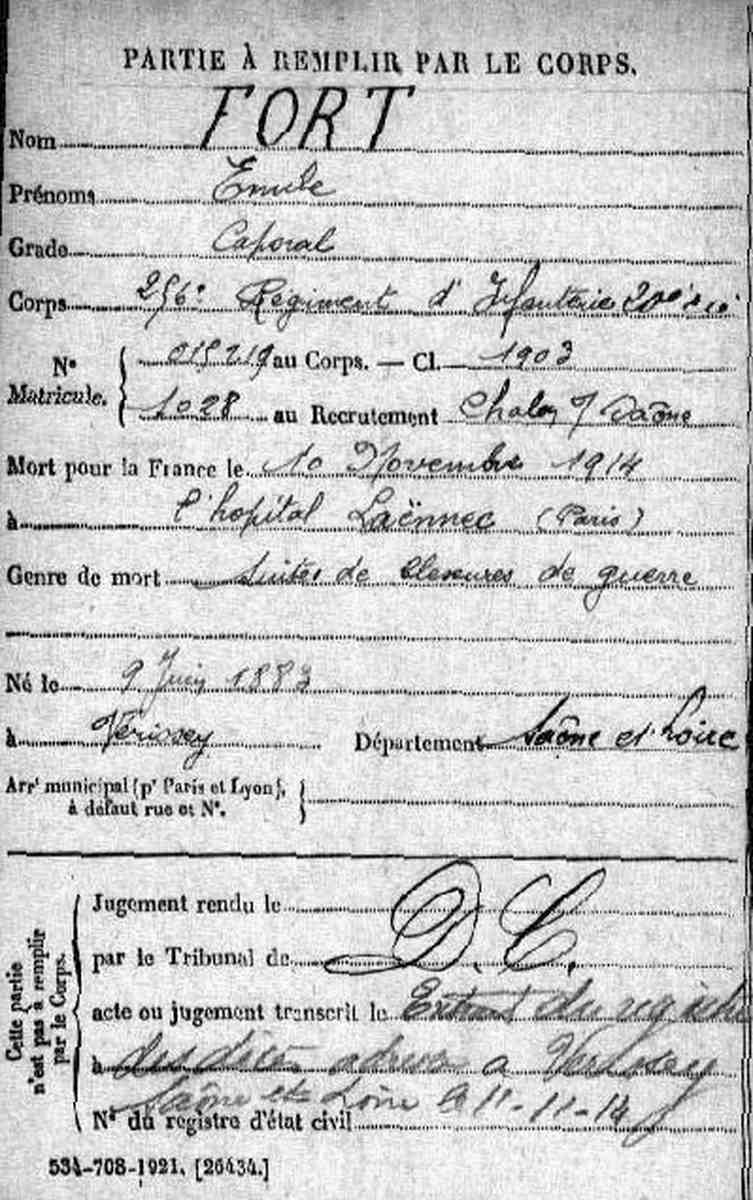 PARTIE À REMPLIR PAR LE CORPS.
Nom FORT
Prénoms Emile
Grade Caporal
Corps 256e Régiment d'Infanterie
N° Matricule. 015219 au Corps. — Cl. 1903
1028 au Recrutement Chalon s/ Saône
Mort pour la France le 10 Novembre 1914
à l'hopital Laënnec (Paris)
Genre de mort suites de blessures de guerre
Né le 9 Juin 1883
à Vérissey Département Saône et Loire
Arrt municipal (pr Paris et Lyon), à défaut rue et N°.
Cette partie n'est pas à remplir par le Corps.
Jugement rendu le
par le Tribunal de D.C.
acte ou jugement transcrit le Extrait du registre
à des décès adressé à Vérissey
Saône et Loire le 11-11-14
N° du registre d'état civil
534-708-1921. [26434.]